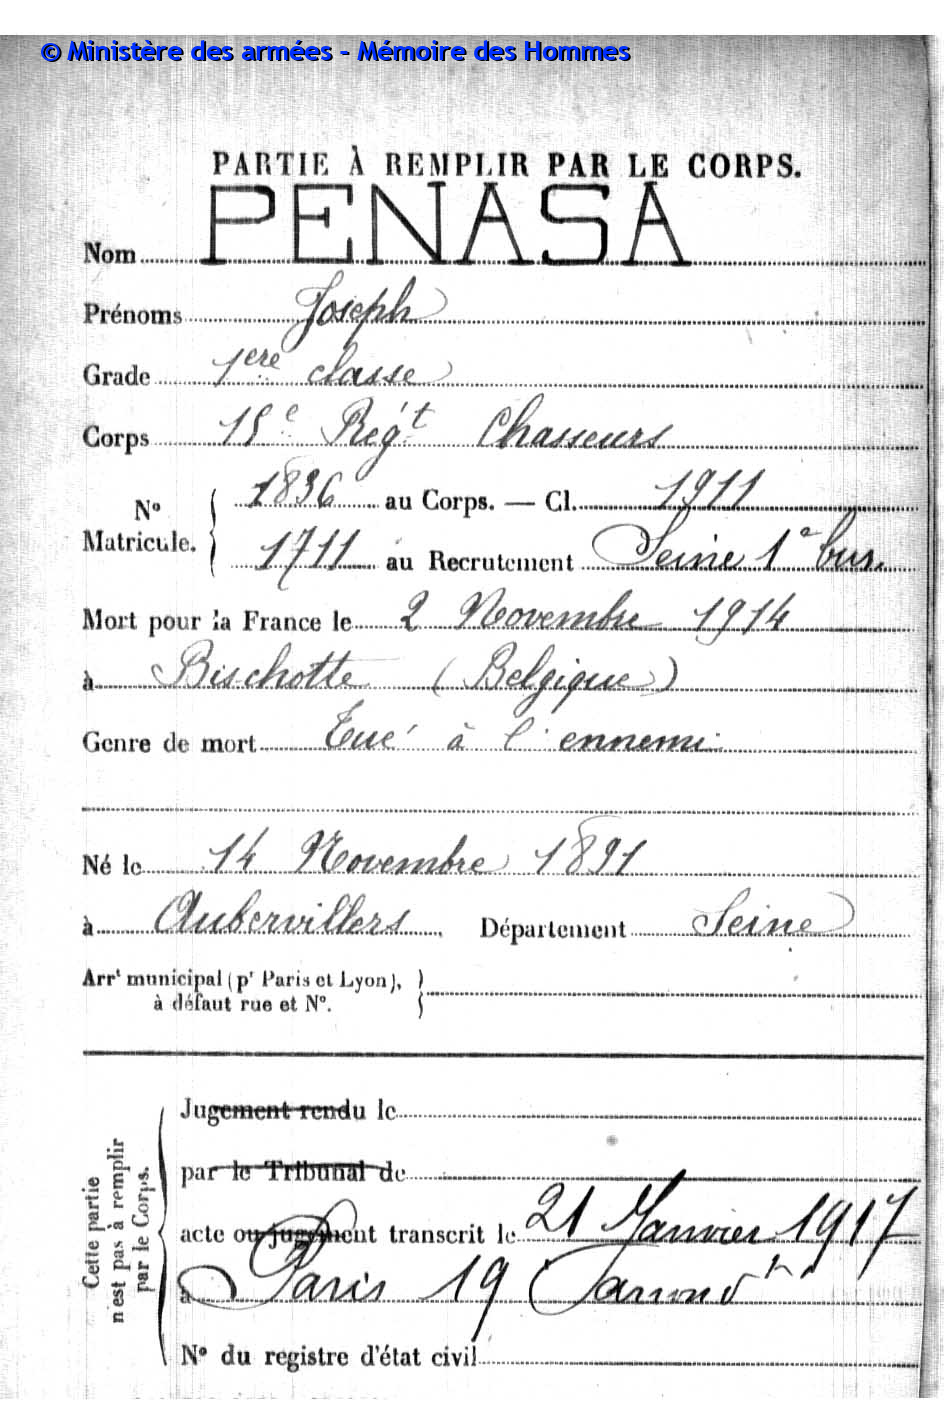 © Ministère des armées - Mémoire des Hommes
PARTIE À REMPLIR PAR LE CORPS.
Nom PENASA
Prénoms Joseph
Grade 1ere classe
Corps 15e Régt Chasseurs
No Matricule. { 1836 au Corps. — Cl. 1911
1711 au Recrutement Seine 1e bur.
Mort pour la France le 2 Novembre 1914
à Bischotte (Belgique)
Genre de mort Tué à l'ennemi
Né le 14 Novembre 1891
à Aubervillers, Département Seine
Arrt municipal (pr Paris et Lyon), à défaut rue et No. }
Cette partie n'est pas à remplir par le Corps.
Jugement rendu le
par le Tribunal de
acte ou jugement transcrit le 21 Janvier 1917
à Paris 19
No du registre d'état civil